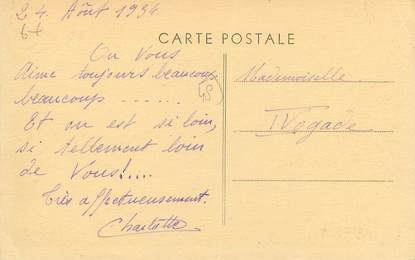 24. Août 1934.
CARTE POSTALE
On Vous
Aime toujours beaucoup
beaucoup ......
Et on est si loin,
si tellement loin
de Vous!....
Très affectueusement.
Charlotte
Mademoiselle